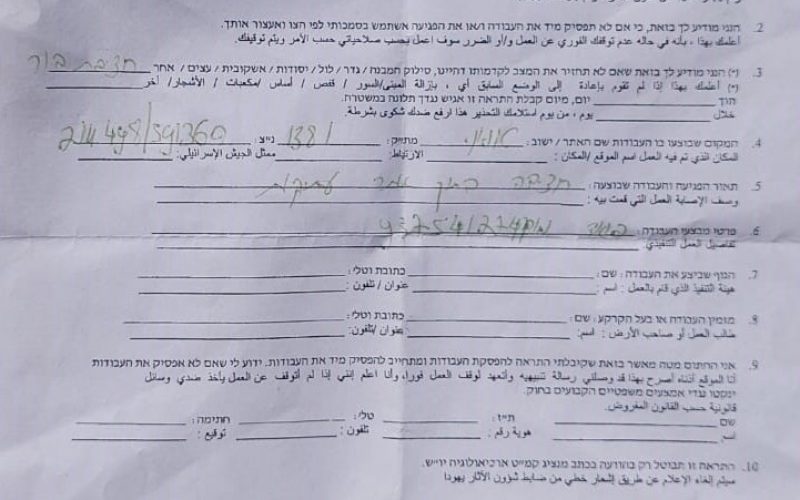 2. הנני מודיע לך בזאת, כי אם לא תפסיק מיד את העבודה ו/או את הפגיעה אשתמש בסמכותי לפי חצו ואעצור אותך.
أعلمك بهذا ، بأنه في حاله عدم توقفك الفوري عن العمل و/أو الضرر سوف اعمل بحسب صلاحياتي حسب الأمر ويتم توقيفك.
3. (*) הנני מודיע לך בזאת שאם לא תחזיר את המצב לקדמותו דהיינו, סילוק המבנה / גדר / לול / יסודות / אשקובית / עצים / אחר חציבת בור
(*) أعلمك بهذا إذا لم تقوم بإعادة إلى الوضع السابق أي ، بإزالة المبنى/السور / قفص / أساس /مكعبات / الأشجار/ آخر
תוך יום, מיום קבלת התראה זו אגיש נגדך תלונה במשטרה.
خلال يوم ، من يوم استلامك التحذير هذا ارفع ضدك شكوى بشرطة.
4. המקום שבוצעו בו העבודות שם האתר / ישוב : מתי"ק : 1381 נ"צ :
المكان الذي تم فيه العمل اسم الموقع /المكان : الارتباط: ممثل الجيش الإسرائيلي:
5. תאור הפגיעה והעבודה שבוצעה : חציבה בתוך אתר עתיקות
وصف الإصابة العمل التي قمت بيه :
6. פרטי מבצעי העבודה :
تفاصيل العمل التنفيذي:
7. הגוף שביצע את העבודה : שם : כתובת וטלי :
هيئة التنفيذ الذي قام بالعمل : اسم : عنوان / تلفون :
8. מזמין העבודה או בעל הקרקע : שם : כתובת וטלי :
طالب العمل أو صاحب الأرض : اسم: عنوان /تلفون:
9. אני החתום מטה מאשר בזאת שקיבלתי התראה להפסקת העבודות ומתחייב להפסיק מיד את העבודות. ידוע לי שאם לא אפסיק את העבודות
أنا الموقع أدناه أصرح بهذا قد وصلني رسالة تنبيهيه وأتعهد لوقف العمل فورا، وأنا اعلم إنني إذا لم أتوقف عن العمل يأخذ ضدي وسائل
ינקטו נגדי אמצעים משפטיים הקבועים בחוק.
قانونية حسب القانون المفروض.
שם ת"ז : טלי : חתימה :
اسم هوية رقم : تلفون : توقيع :
10. התראה זו תבוטל רק בהודעה בכתב מנציג קמ"ט ארכיאולוגיה יו"ש.
سيتم إلغاء الإعلام عن طريق إشعار خطي من ضابط شؤون الآثار يهودا